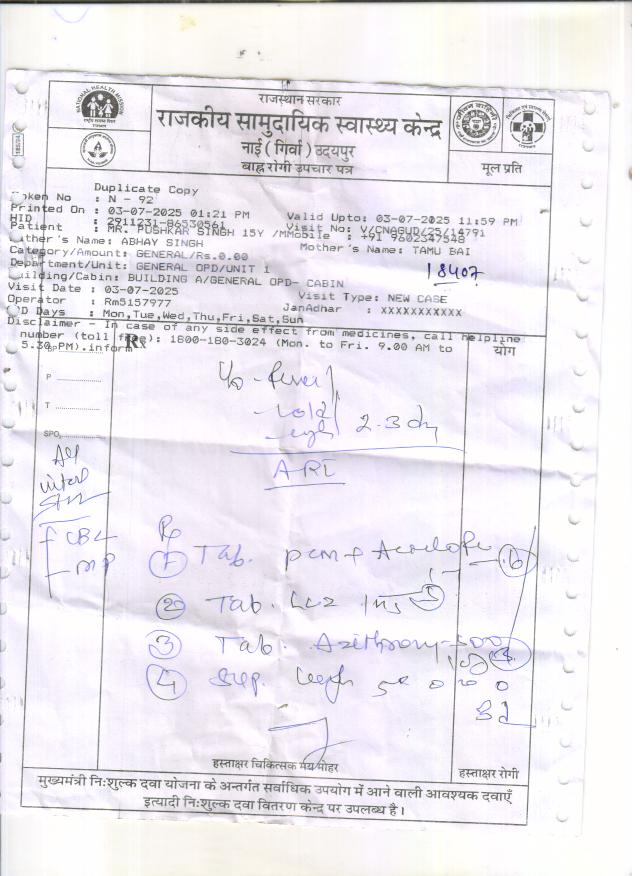 राजस्थान सरकार
राजकीय सामुदायिक स्वास्थ्य केन्द्र
नाई ( गिर्वा ) उदयपुर
बाह्य रोगी उपचार पत्र
मूल प्रति
Duplicate Copy
Token No : N - 92
Printed On : 03-07-2025 01:21 PM Valid Upto: 03-07-2025 11:59 PM
HID : 2911231-86530561 Visit No: V/CNAGUD/25/14791
Patient : MR. PUSHKAR SINGH 15Y /M Mobile : +91 9602347548
Father's Name: ABHAY SINGH Mother's Name: TAMU BAI
Category/Amount: GENERAL/Rs.0.00
Department/Unit: GENERAL OPD/UNIT 1
18407
Building/Cabin: BUILDING A/GENERAL OPD- CABIN
Visit Date : 03-07-2025 Visit Type: NEW CASE
Operator : Rm5157977 JanAdhar : XXXXXXXXXXX
OPD Days : Mon,Tue,Wed,Thu,Fri,Sat,Sun
Disclaimer - In case of any side effect from medicines, call helpline
number (toll free): 1800-180-3024 (Mon. to Fri. 9.00 AM to
5.30 PM).inform
Rx
योग
P
T
SPO2
c/o - fever
- cold
- cough 2-3 day
ARI
All
vital
CBC
MP
Rx
1 Tab. pcm + Aceclofe
2 Tab.
3 Tab. Azithromy-500
4 Syp. Cough
3d
हस्ताक्षर चिकित्सक मय मोहर
हस्ताक्षर रोगी
मुख्यमंत्री नि:शुल्क दवा योजना के अन्तर्गत सर्वाधिक उपयोग में आने वाली आवश्यक दवाएँ
इत्यादी नि:शुल्क दवा वितरण केन्द्र पर उपलब्ध है।